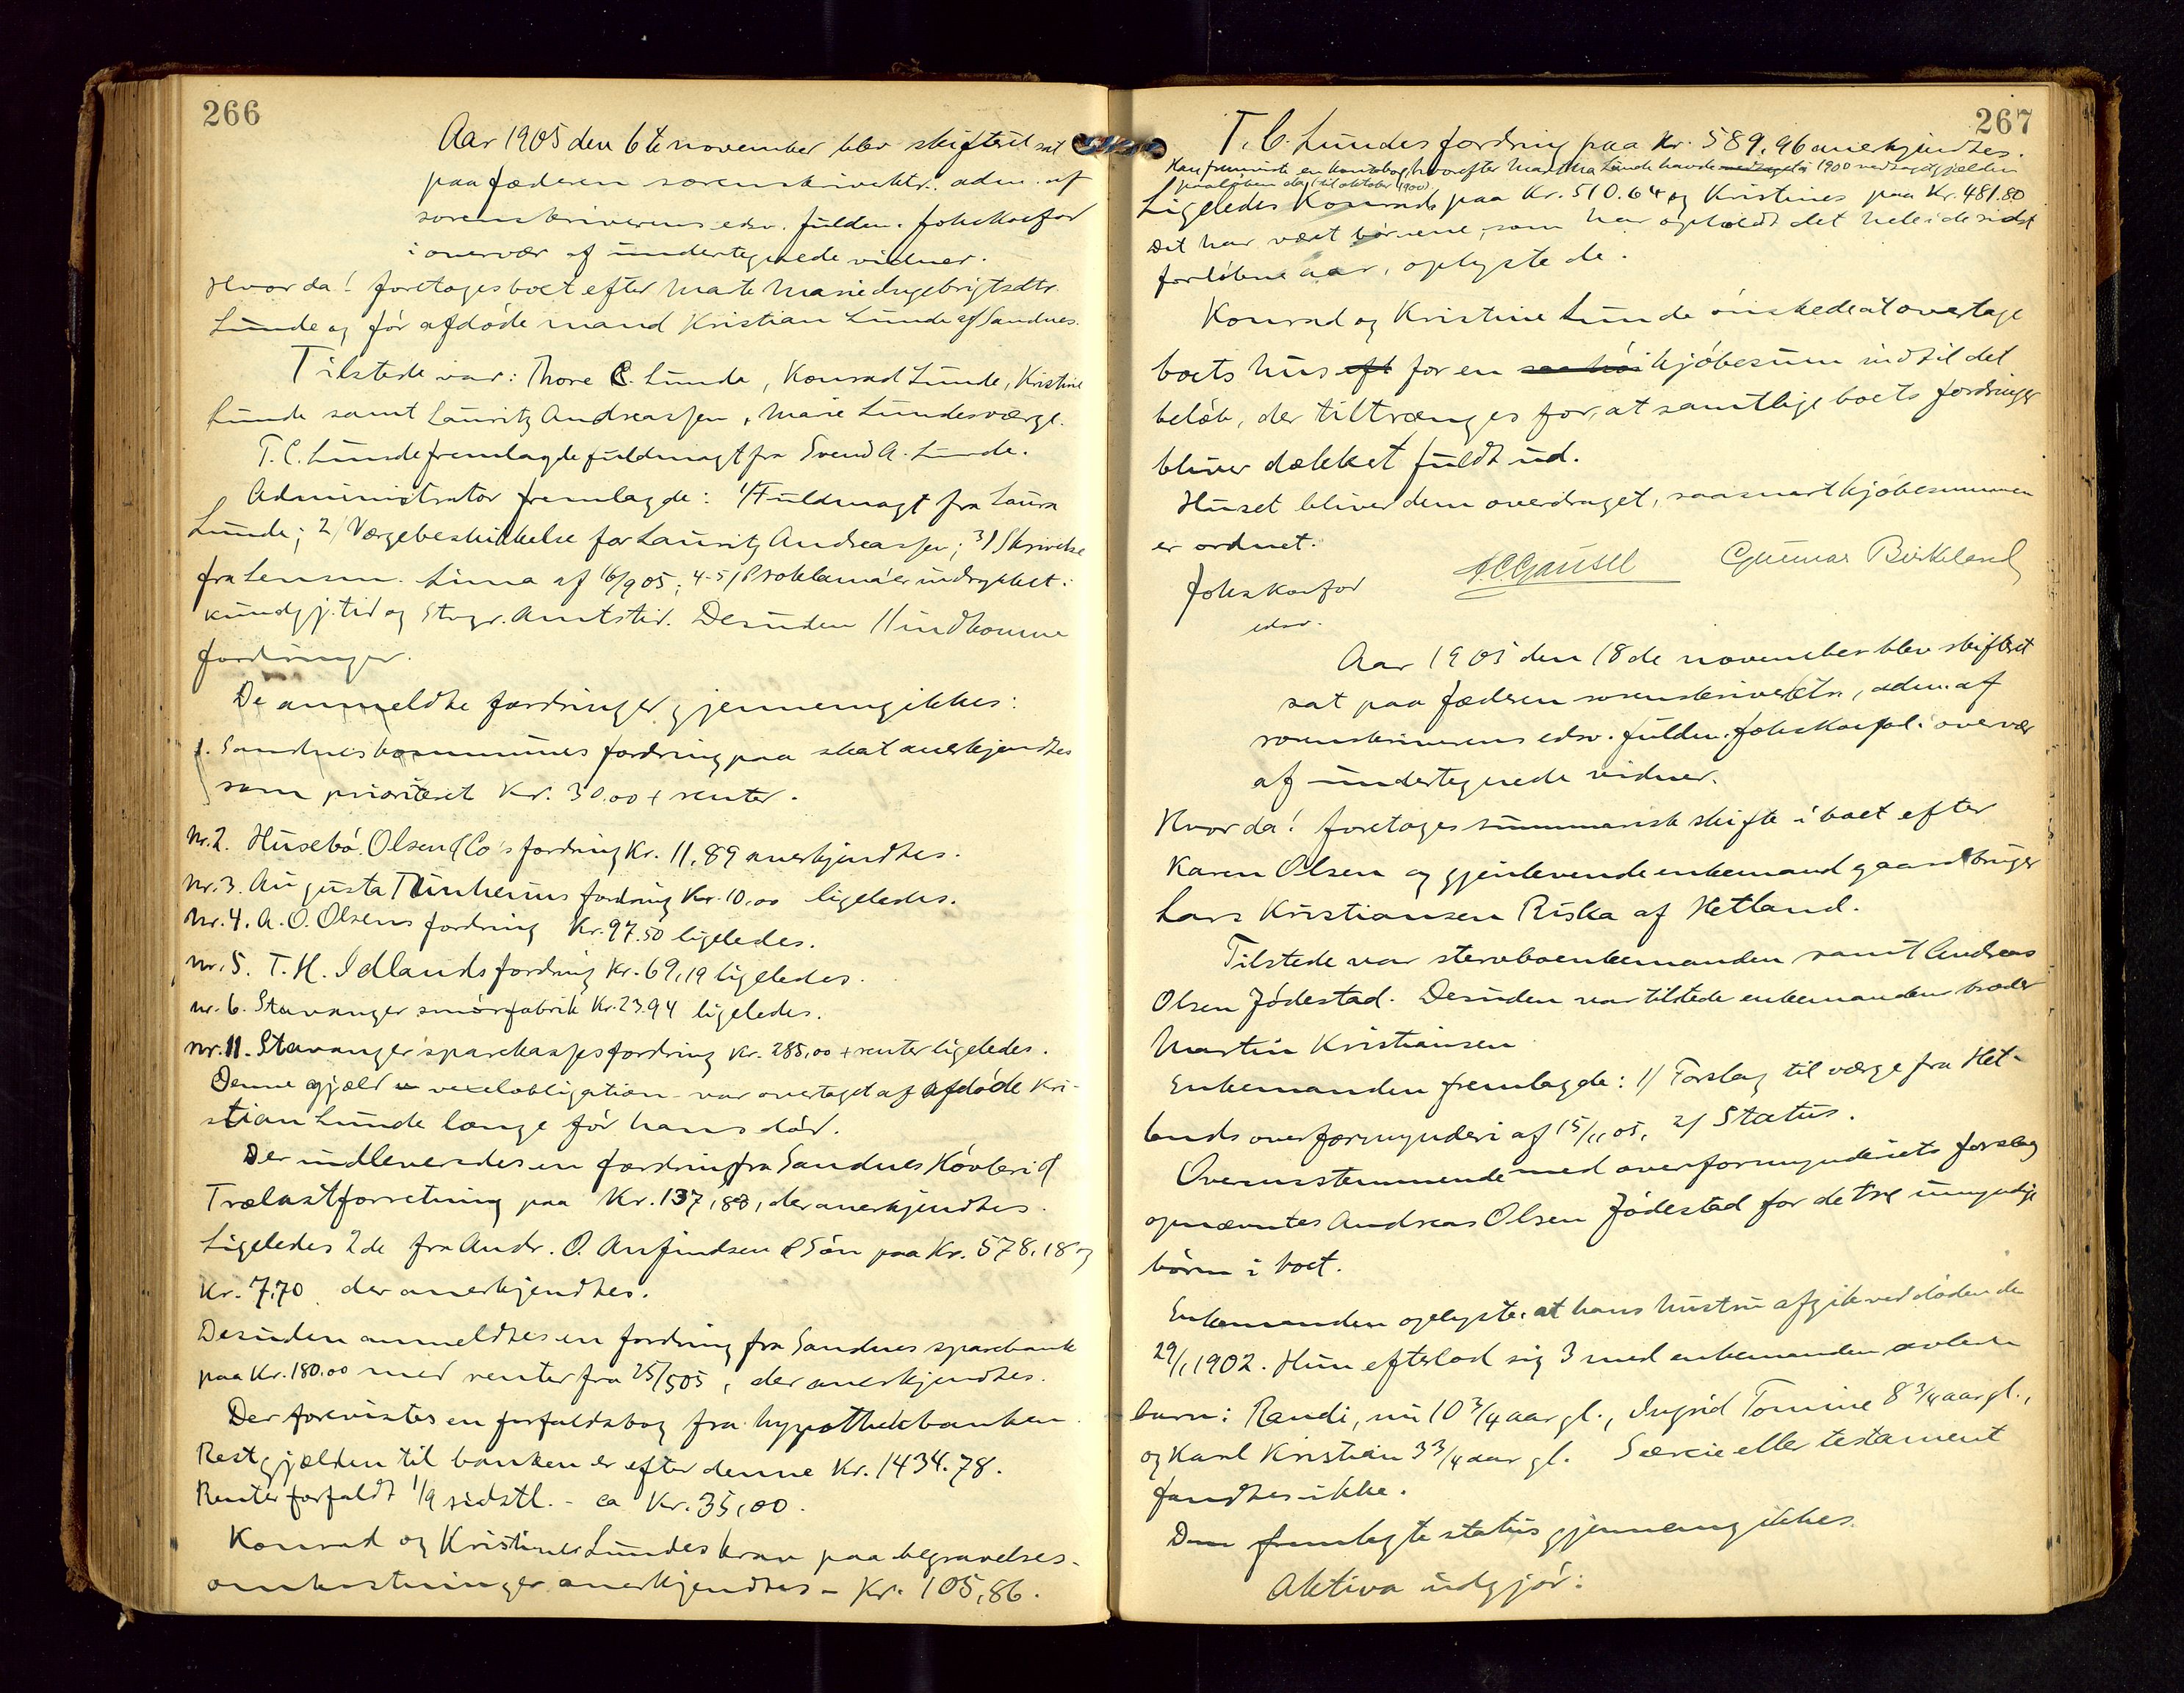 266
Aar 1905 den 6te november blev skifteret sat
paa Jæderen sorenskriverktr. adm. af
sorenskriverens edsv. fuldm. Johs Koefod
i overvær af undertegnede vidner.
Hvor da! foretoges boet efter Marte Marie Ingebrigtsdtr.
Lunde og før afdøde mand Kristian Lunde af Sandnes.
Tilstede var: Thore C. Lunde, Konrad Lunde, Kristine
Lunde samt Lauritz Andreassen, Marie Lundes værge.
T. C. Lunde fremlagde fuldmagt fra Svend A. Lunde.
Administrator fremlagde: 1/ Fuldmagt fra Laura
Lunde; 2/ Værgebeskikkelse for Lauritz Andreassen; 3/ Skrivelse
fra Lensm. Lima af 16/9 05; 4-5/ Proklama'er indrykket i
kundgj.tid og Stvgr. Amtstid. Desuden 11 indkomne
fordringer.
De anmeldte fordringer gjennemgikkes:
1. Sandnes kommunes fordring paa skat anerkjendtes
som prioriteret Kr. 30,00 + renter.
Nr. 2. Husebø Olsen & Co's fordring Kr. 11,89 anerkjendtes.
Nr. 3. Augusta Thinheims fordring Kr. 10,00 ligeledes.
Nr. 4. A. O. Olsens fordring Kr. 97.50 ligeledes.
Nr. 5. T. H. Idlands fordring Kr. 69,19 ligeledes.
nr. 6. Stavanger smørfabrik Kr. 23.94 ligeledes.
Nr. 11. Stavanger sparekasses fordring Kr. 285,00 + renter ligeledes.
Denne gjæld - vexelobligation - var overtaget af afdøde Kri-
stian Lunde længe før hans død.
Der indleveredes en fordring fra Sandnes Høvleri &
Trælastforretning paa Kr. 137,80, der anerkjendtes.
Ligeledes 2de fra Andr. O. Anfindsen & Søn paa Kr. 578,18 og
Kr. 7,70 der anerkjendtes.
Desuden anmeldtes en fordring fra Sandnes sparebank
paa Kr. 180.00 med renter fra 25/5 05, der anerkjendtes.
Der forevistes en forfaldsbog fra hypothekbanken.
Restgjælden til banken er efter denne Kr. 1434.78.
Renter forfaldt 1/9 sidstl. - ca Kr. 35,00.
Konrad og Kristine Lundes krav paa begravelses-
omkostninger anerkjendtes - Kr. 105,86.
267
T. C. Lundes fordring paa Kr. 589,96 anerkjendtes.
Han fremviste en kontobog, hvorefter Martha Lunde havde vedtaget i 1900 vedtaget gjælden
paaløben da (til oktober 1900)
Ligeledes Konrads paa Kr. 510.64 og Kristines paa Kr. 481.80
Det har været børnene, som har opholdt det hele i de sidst
forløbne aar, oplyste de.
Konrad og Kristine Lunde ønskede at overtage
boets hus eft for en saa høi kjøbesum indtil det
beløb, der tiltrænges for, at samtlige boets fordringer
bliver dækket fuldt ud.
Huset bliver dem overdraget, saasnart kjøbesummen
er ordnet.
Johs Koefod
edsv.
A C Gausel Gunnar Birkeland
Aar 1905 den 18de november blev skifteret
sat paa Jæderen sorenskriverktr., adm. af
sorenskriverens edsv. fuldm. Johs Koefod i overvær
af undertegnede vidner.
Hvor da! foretoges summarisk skifte i boet efter
Karen Olsen og gjenlevende enkemand gaardbruger
Lars Kristiansen Riska af Hetland.
Tilstede var stervboenkemanden samt Andreas
Olsen Jødestad. Desuden var tilstede enkemandens broder
Martin Kristiansen
Enkemanden fremlagde: 1/ Forslag til værge fra Het-
lands overformynderi af 15/11 05, 2/ Status.
Overensstemmende med overformynderiets forslag
opnævntes Andreas Olsen Jødestad for de tre umyndige
børn i boet.
Enkemanden oplyste, at hans hustru afgik ved døden den
29/1 1902. Hun efterlod sig 3 med enkemanden avlede
barn: Randi, nu 10 3/4 aar gl., Ingrid Tomine 8 3/4 aar gl.,
og Karl Kristian 3 3/4 aar gl. Særeie eller testament
fandtes ikke.
Den fremlagte status gjennemgikkes.
Aktiva udgjør: